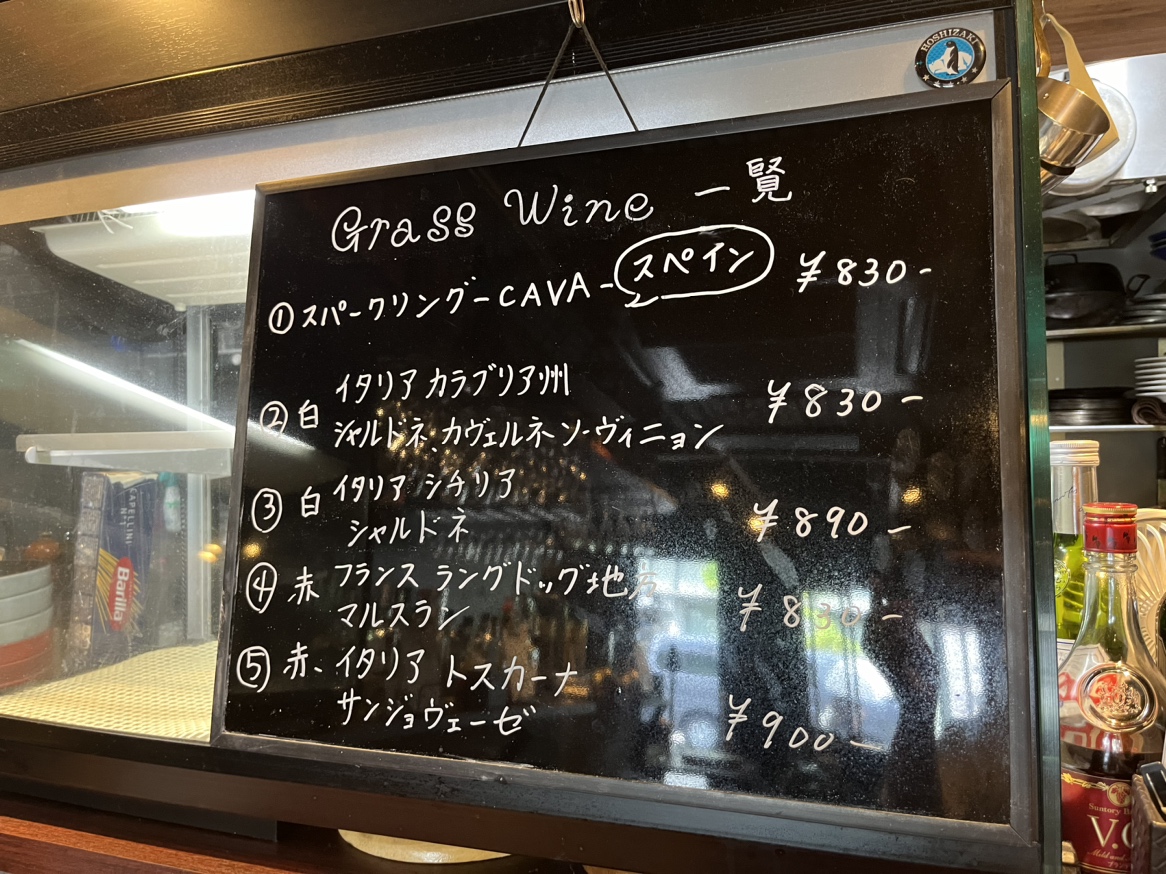 HOSHIZAKI
Grass Wine 一覧
①スパークリング-CAVA-スペイン ¥830-
②白 イタリア カラブリア州
シャルドネ、カヴェルネソーヴィニョン ¥830-
③白 イタリア シチリア
シャルドネ ¥890-
④赤 フランス ラングドッグ地方
マルスラン ¥830-
⑤赤、イタリア トスカーナ
サンジョヴェーゼ ¥900-
CAPELLINI
N.1
Barilla
Suntory
V.